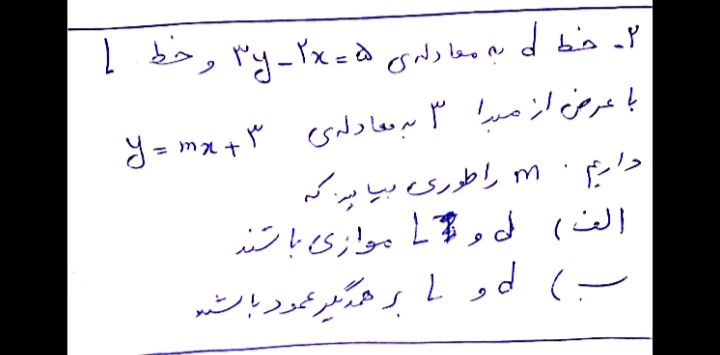 ۲- خط d به معادله‌ی ۳y-۲x=۵ و خط L
با عرض از مبدا ۳ به معادله‌ی y=mx+۳
داریم. m را طوری بیابید که
الف) d و L موازی باشند
ب) d و L بر همدیگر عمود باشند